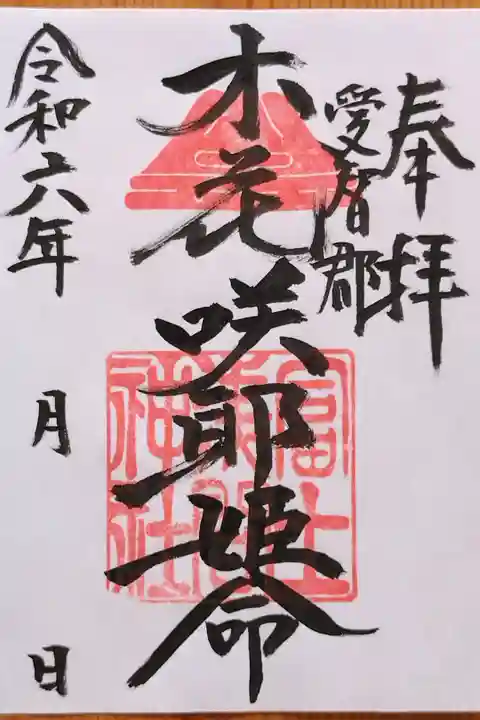 奉拝
愛智郡
木花咲耶姫命
令和六年 月 日
富士
神社